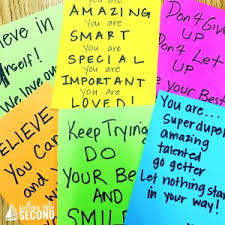 ieve in
rself!
We love
You are
AMAZING
You are
SMART
You are
SPECIAL
You are
IMPORTANT
You are
LOVED!
Don't Give
UP
Don't Let
UP
Your
Best
ELIEVE
You Ca
and
Keep Trying
DO
YOUR BE
AND
SMILE
You are...
Super duper
amazing
talented
go getter
Let nothing stan
in your way!
sailing into
SECOND